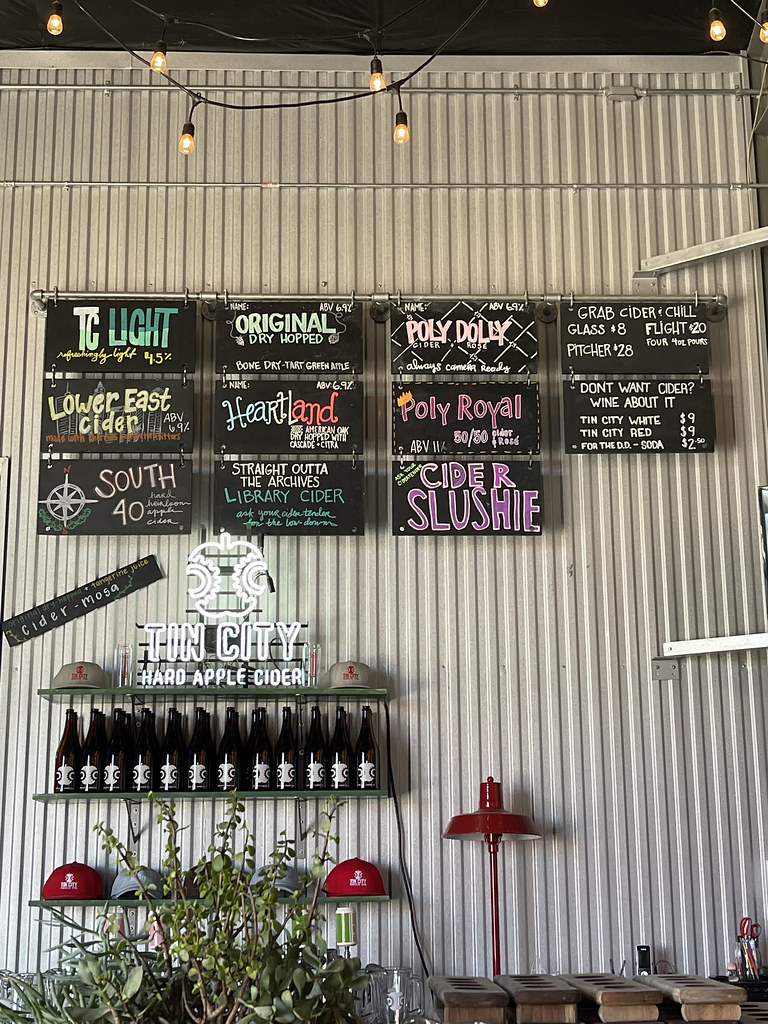 TC LIGHT
refreshingly light 4.5%
LOWER EAST
CIDER
ABV
6.9%
made with cherries
SOUTH
40
hard
heirloom
apple
cider
NAME: ABV 6.9%
ORIGINAL
DRY HOPPED
BONE DRY-TART GREEN APPLE
NAME: ABV 6.9%
HEARTLAND
AMERICAN OAK
DRY HOPPED WITH
CASCADE + CITRA
STRAIGHT OUTTA
THE ARCHIVES
LIBRARY CIDER
ask your cider tender
for the low-down
NAME: ABV 6.9%
POLY DOLLY
CIDER ROSÉ
always camera ready
Poly Royal
ABV 11%
50/50 cider
& Rosé
ASK YOUR
CIDERTENDER
CIDER
SLUSHIE
GRAB CIDER & CHILL
GLASS $8 FLIGHT $20
PITCHER $28 FOUR 4oz POURS
DON'T WANT CIDER?
WINE ABOUT IT
TIN CITY WHITE $9
TIN CITY RED $9
FOR THE D.D. - SODA $2.50
original dry-hopped + tangerine juice
cider-mosa
TIN CITY
HARD APPLE CIDER
TIN CITY